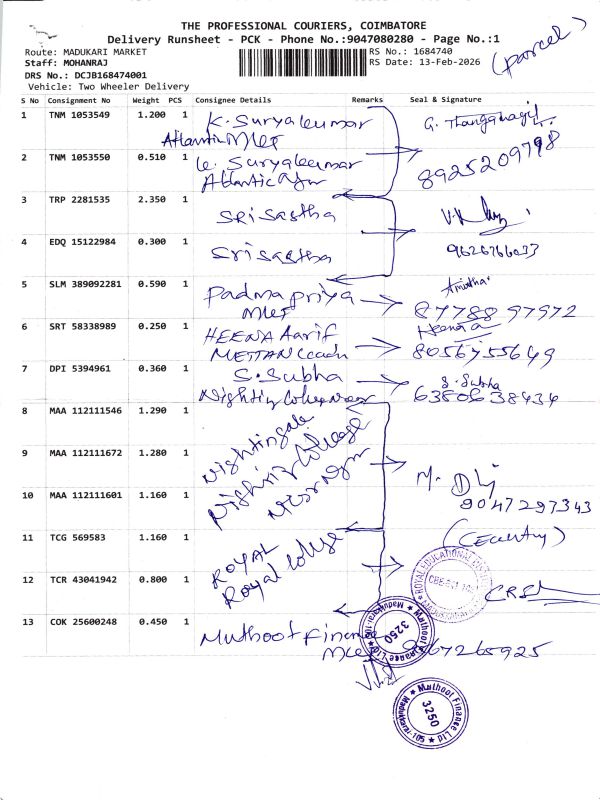 THE PROFESSIONAL COURIERS, COIMBATORE
Delivery Runsheet - PCK - Phone No.:9047080280 - Page No.:1
(parcel)
Route: MADUKARI MARKET
RS No.: 1684740
Staff: MOHANRAJ
RS Date: 13-Feb-2026
DRS No.: DCJB168474001
Vehicle: Two Wheeler Delivery
S No Consignment No Weight PCS Consignee Details Remarks Seal & Signature
1 TNM 1053549 1.200 1 K. Suryakumar
Atlantic
2 TNM 1053550 0.510 1 K. Suryakumar
Atlantic
8925209798
3 TRP 2281535 2.350 1 SRi Sastha
4 EDQ 15122984 0.300 1 Sri sastha
9626766033
5 SLM 389092281 0.590 1 Padma priya
8778897972
6 SRT 58338989 0.250 1 HEENA Aarif Heena
8056755649
7 DPI 5394961 0.360 1 S. Subha S. Subha
6380638434
8 MAA 112111546 1.290 1 Nightingale
9 MAA 112111672 1.280 1 College
10 MAA 112111601 1.160 1
9047297343
11 TCG 569583 1.160 1 ROYAL
12 TCR 43041942 0.800 1 Royal College
ROYAL EDUCATIONAL
13 COK 25600248 0.450 1 Muthoot Finance
Muthoot Finance Ltd
Madukarai-105
3250
Muthoot Finance Ltd
Madukarai-105
3250